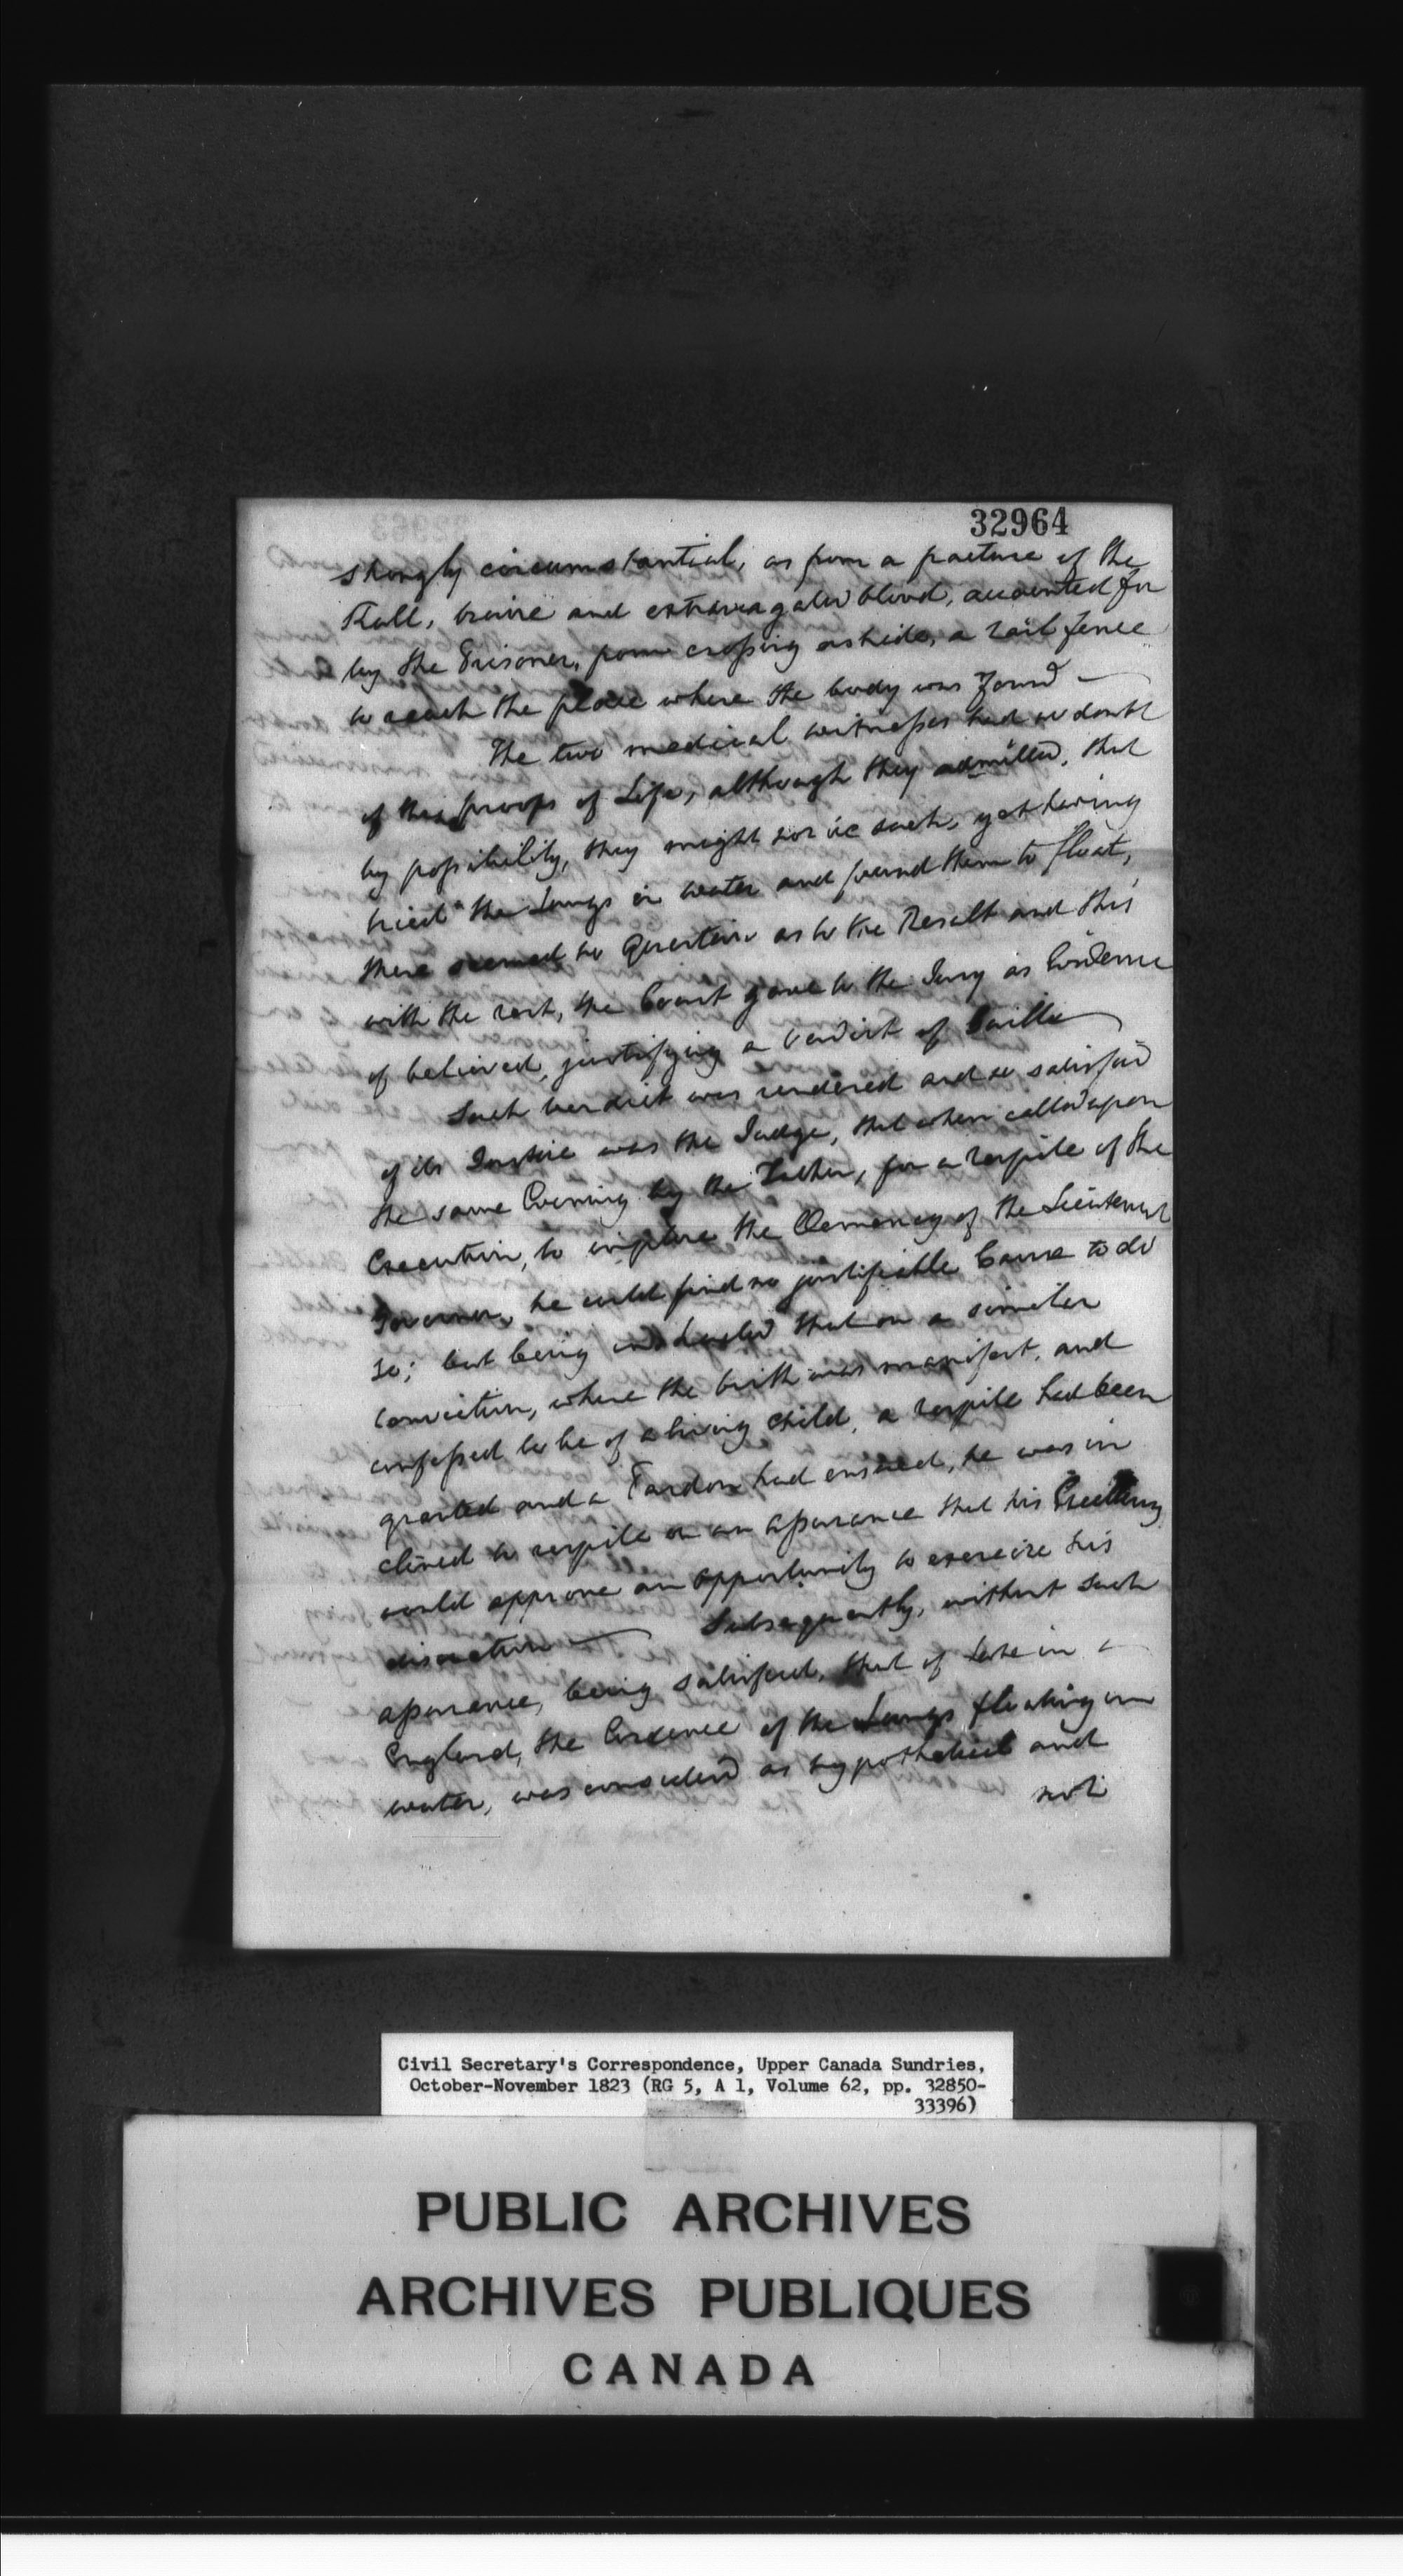 32964
strongly circumstantial, as from a fracture of the
Skull, bruise and extravagated blood, accounted for
by the Prisoner, from crossing astride, a rail fence
to reach the place where the body was found —
The two medical witnesses had no doubt
of these proofs of Life, although they admitted, that
by possibility, they might not be such, yet having
tried the Lungs in water and found them to float,
there seemed no Question as to the Result and this
with the rest, the Court gave to the Jury as Evidence
if believed, justifying a Verdict of Guilty
Such verdict was rendered and so satisfied
of its Justice was the Judge, that when called upon
the same Evening by the Father, for a respite of the
Execution, to implore the Clemency of the Lieutenant
Governor, he could find no justifiable Cause to do
so; but being that on a similar
conviction, where the birth was manifest, and
confessed to be of a living child, a respite had been
granted and a Pardon had ensued, he was in
clined to respite on an assurance that his Excellency
would approve an opportunity to exercise his
discretion — Subsequently, without such
assurance, being satisfied, that of late in
England, the Evidence of the Lungs floating in
water, was considered as hypothetical and
not
Civil Secretary's Correspondence, Upper Canada Sundries,
October-November 1823 (RG 5, A 1, Volume 62, pp. 32850-
33396)
PUBLIC ARCHIVES
ARCHIVES PUBLIQUES
CANADA